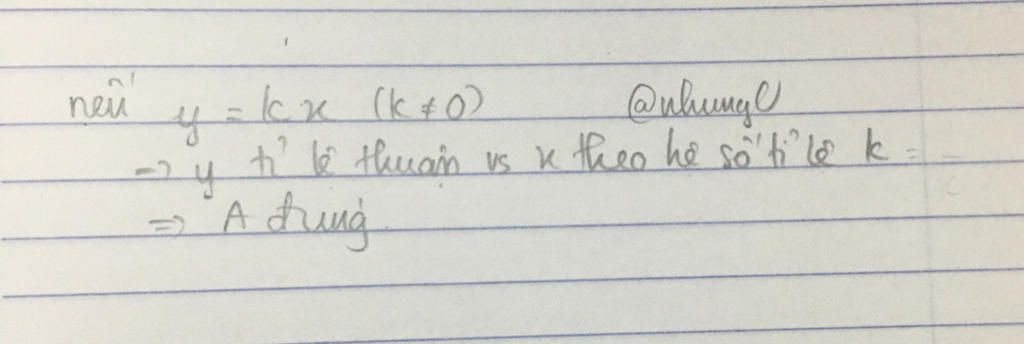 nếu y = kx (k ≠ 0) @nhungl
=> y tỉ lệ thuận vs x theo hệ số tỉ lệ k
=> A đúng